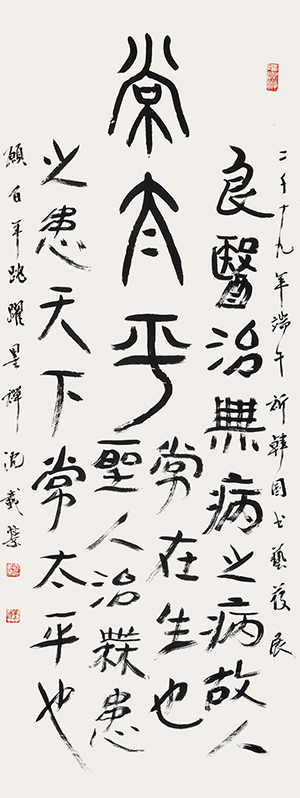 常太平
良醫治無病之病故人
常在生也
聖人治無患
之患天下常太平也
二千十九年端午祈韓国书藝發展
願百年跳躍墨禪沈載榮